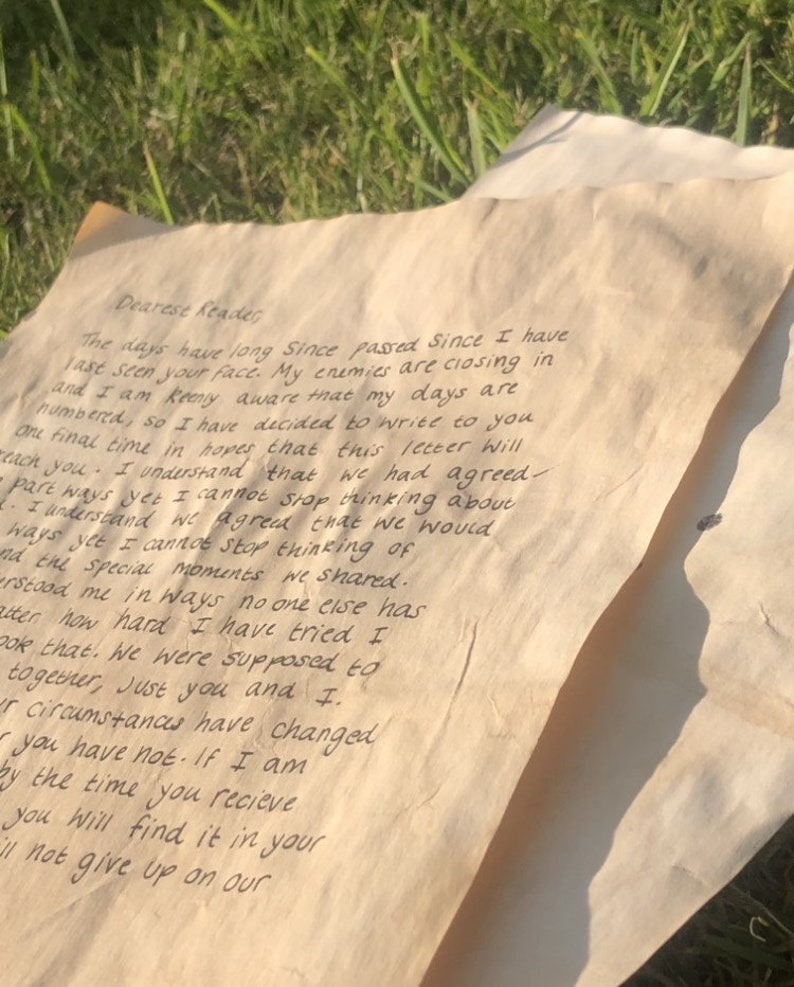 Dearest Reader,
The days have long since passed since I have
last seen your face. My enemies are closing in
and I am keenly aware that my days are
numbered, so I have decided to write to you
one final time in hopes that this letter will
reach you. I understand that we had agreed
part ways yet I cannot stop thinking about
I understand we agreed that we would
ways yet I cannot stop thinking of
and the special moments we shared.
me in ways no one else has
how hard I have tried I
that. We were supposed to
together, Just you and I.
circumstances have changed
you have not. If I am
by the time you recieve
you will find it in your
not give up on our